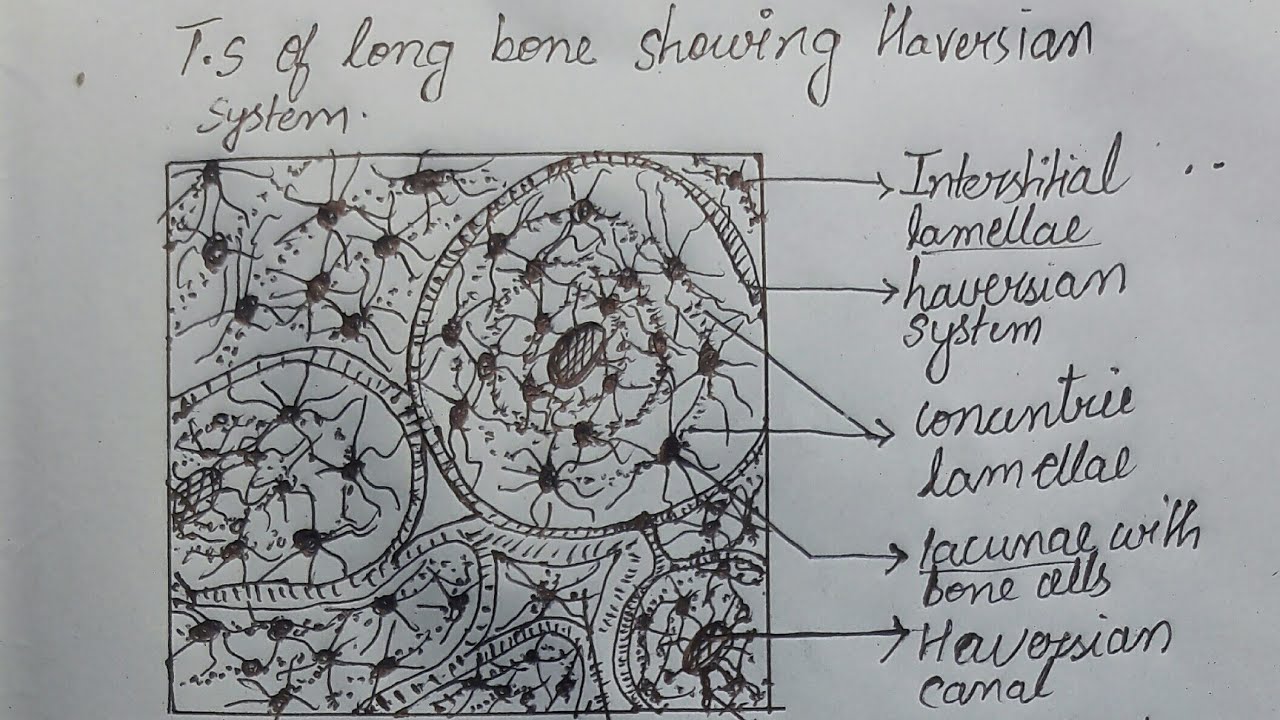 T.S of long bone showing Haversian
system.
Interstitial
lamellae
haversian
system
concentric
lamellae
lacunae with
bone cells
Haversian
canal